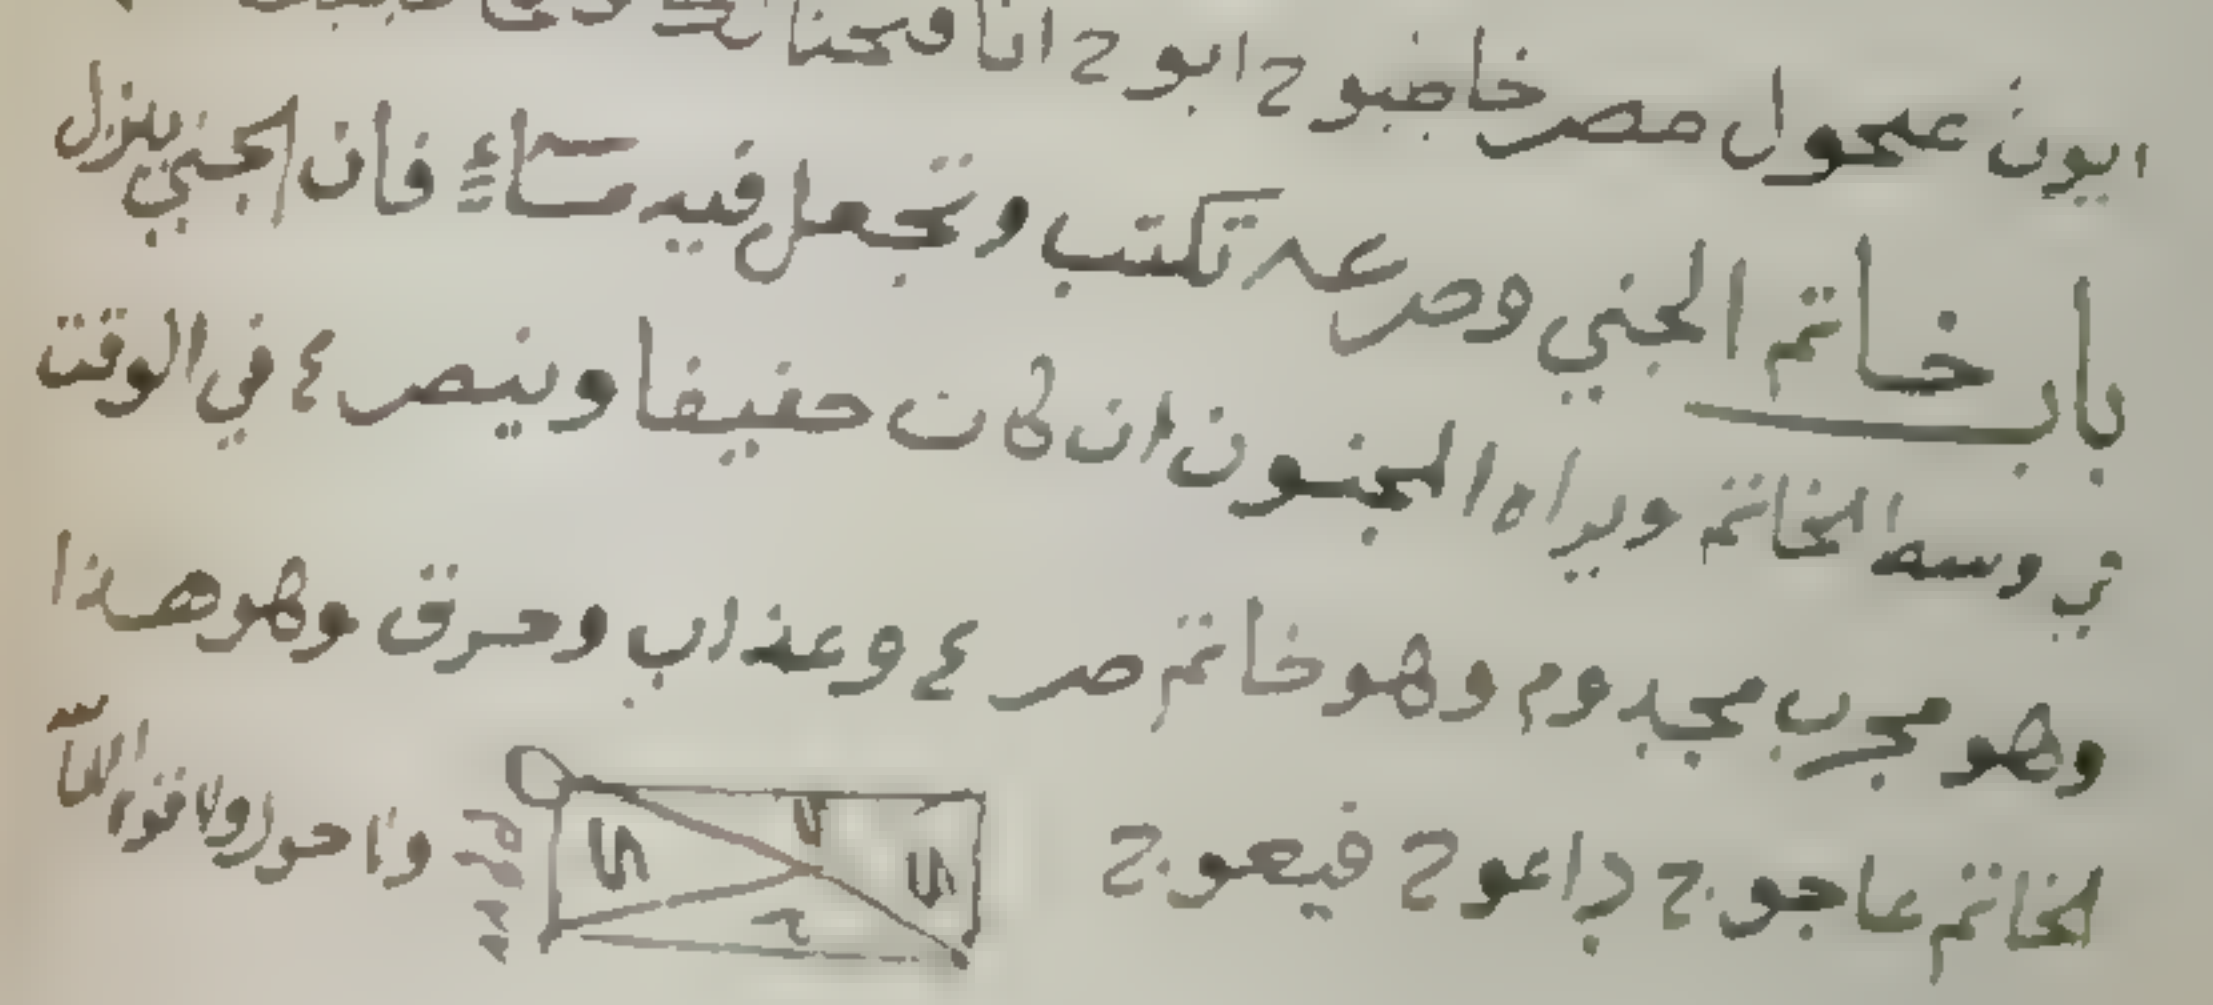 ايون عمحول مصر خاضبو 2 ابو 2 انا فتحنا
باب خاتم الجني وصرعه تكتب وتجعل فيه مساء فان الجني ينزل
في وسه الخاتم ويراه المجنون ان كان حقيقا وينصرع في الوقت
وهو مجرب مجدوم وهو خاتم صرع وعذاب وحرق وهو هذا
الخاتم عاجو 2 داعو 2 فيعو 2
ولا حول ولا قوة الا